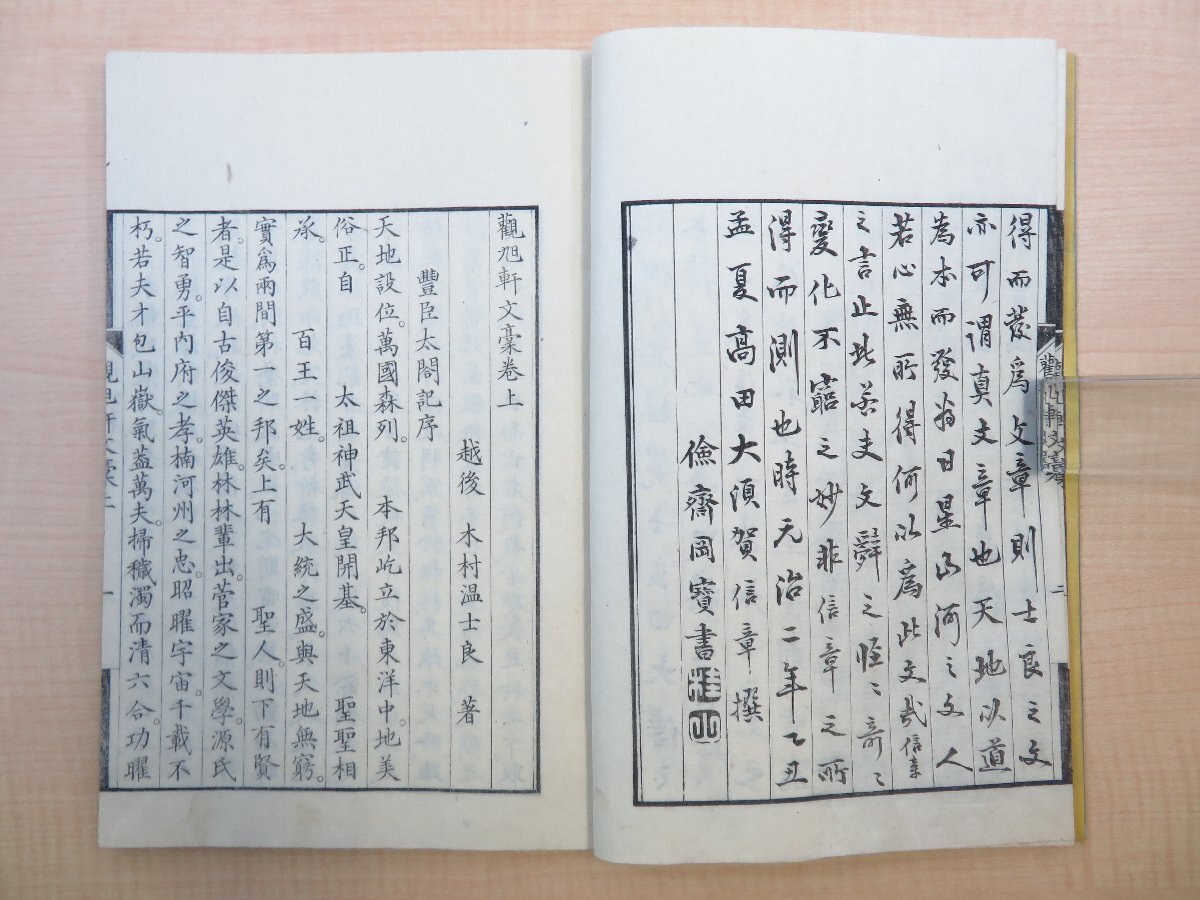 得而發為文章則士良之文
亦可謂真文章也天地以道
為本而發爲日星山河之文人
若心無所得何以為此文哉信章
之言止此若夫文辭之恠〻奇〻
變化不窮之妙非信章之所
得而測也時元治二年乙丑
孟夏高田大須賀信章撰
儉齋岡寶書
觀旭軒文稾卷上
越後 木村温士良 著
豐臣太閤記序
天地設位。萬國森列。 本邦屹立於東洋中。地美
俗正。自 太祖神武天皇開基。 聖聖相
承。 百王一姓。 大統之盛。與天地無窮。
實爲兩間第一之邦矣。上有 聖人。則下有賢
者。是以自古俊傑英雄。林林輩出。菅家之文學。源氏
之智勇。平內府之孝。楠河州之忠。昭曜宇宙。千載不
朽。若夫才包山嶽。氣蓋萬夫。掃穢濁而清六合。功曜